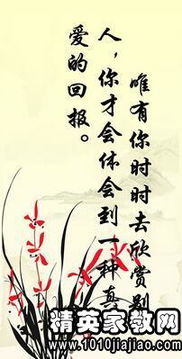 唯有你时时去欣赏别
人，你才会体会到一种真
爱的回报。
精英家教网
www.1010jiajiao.com